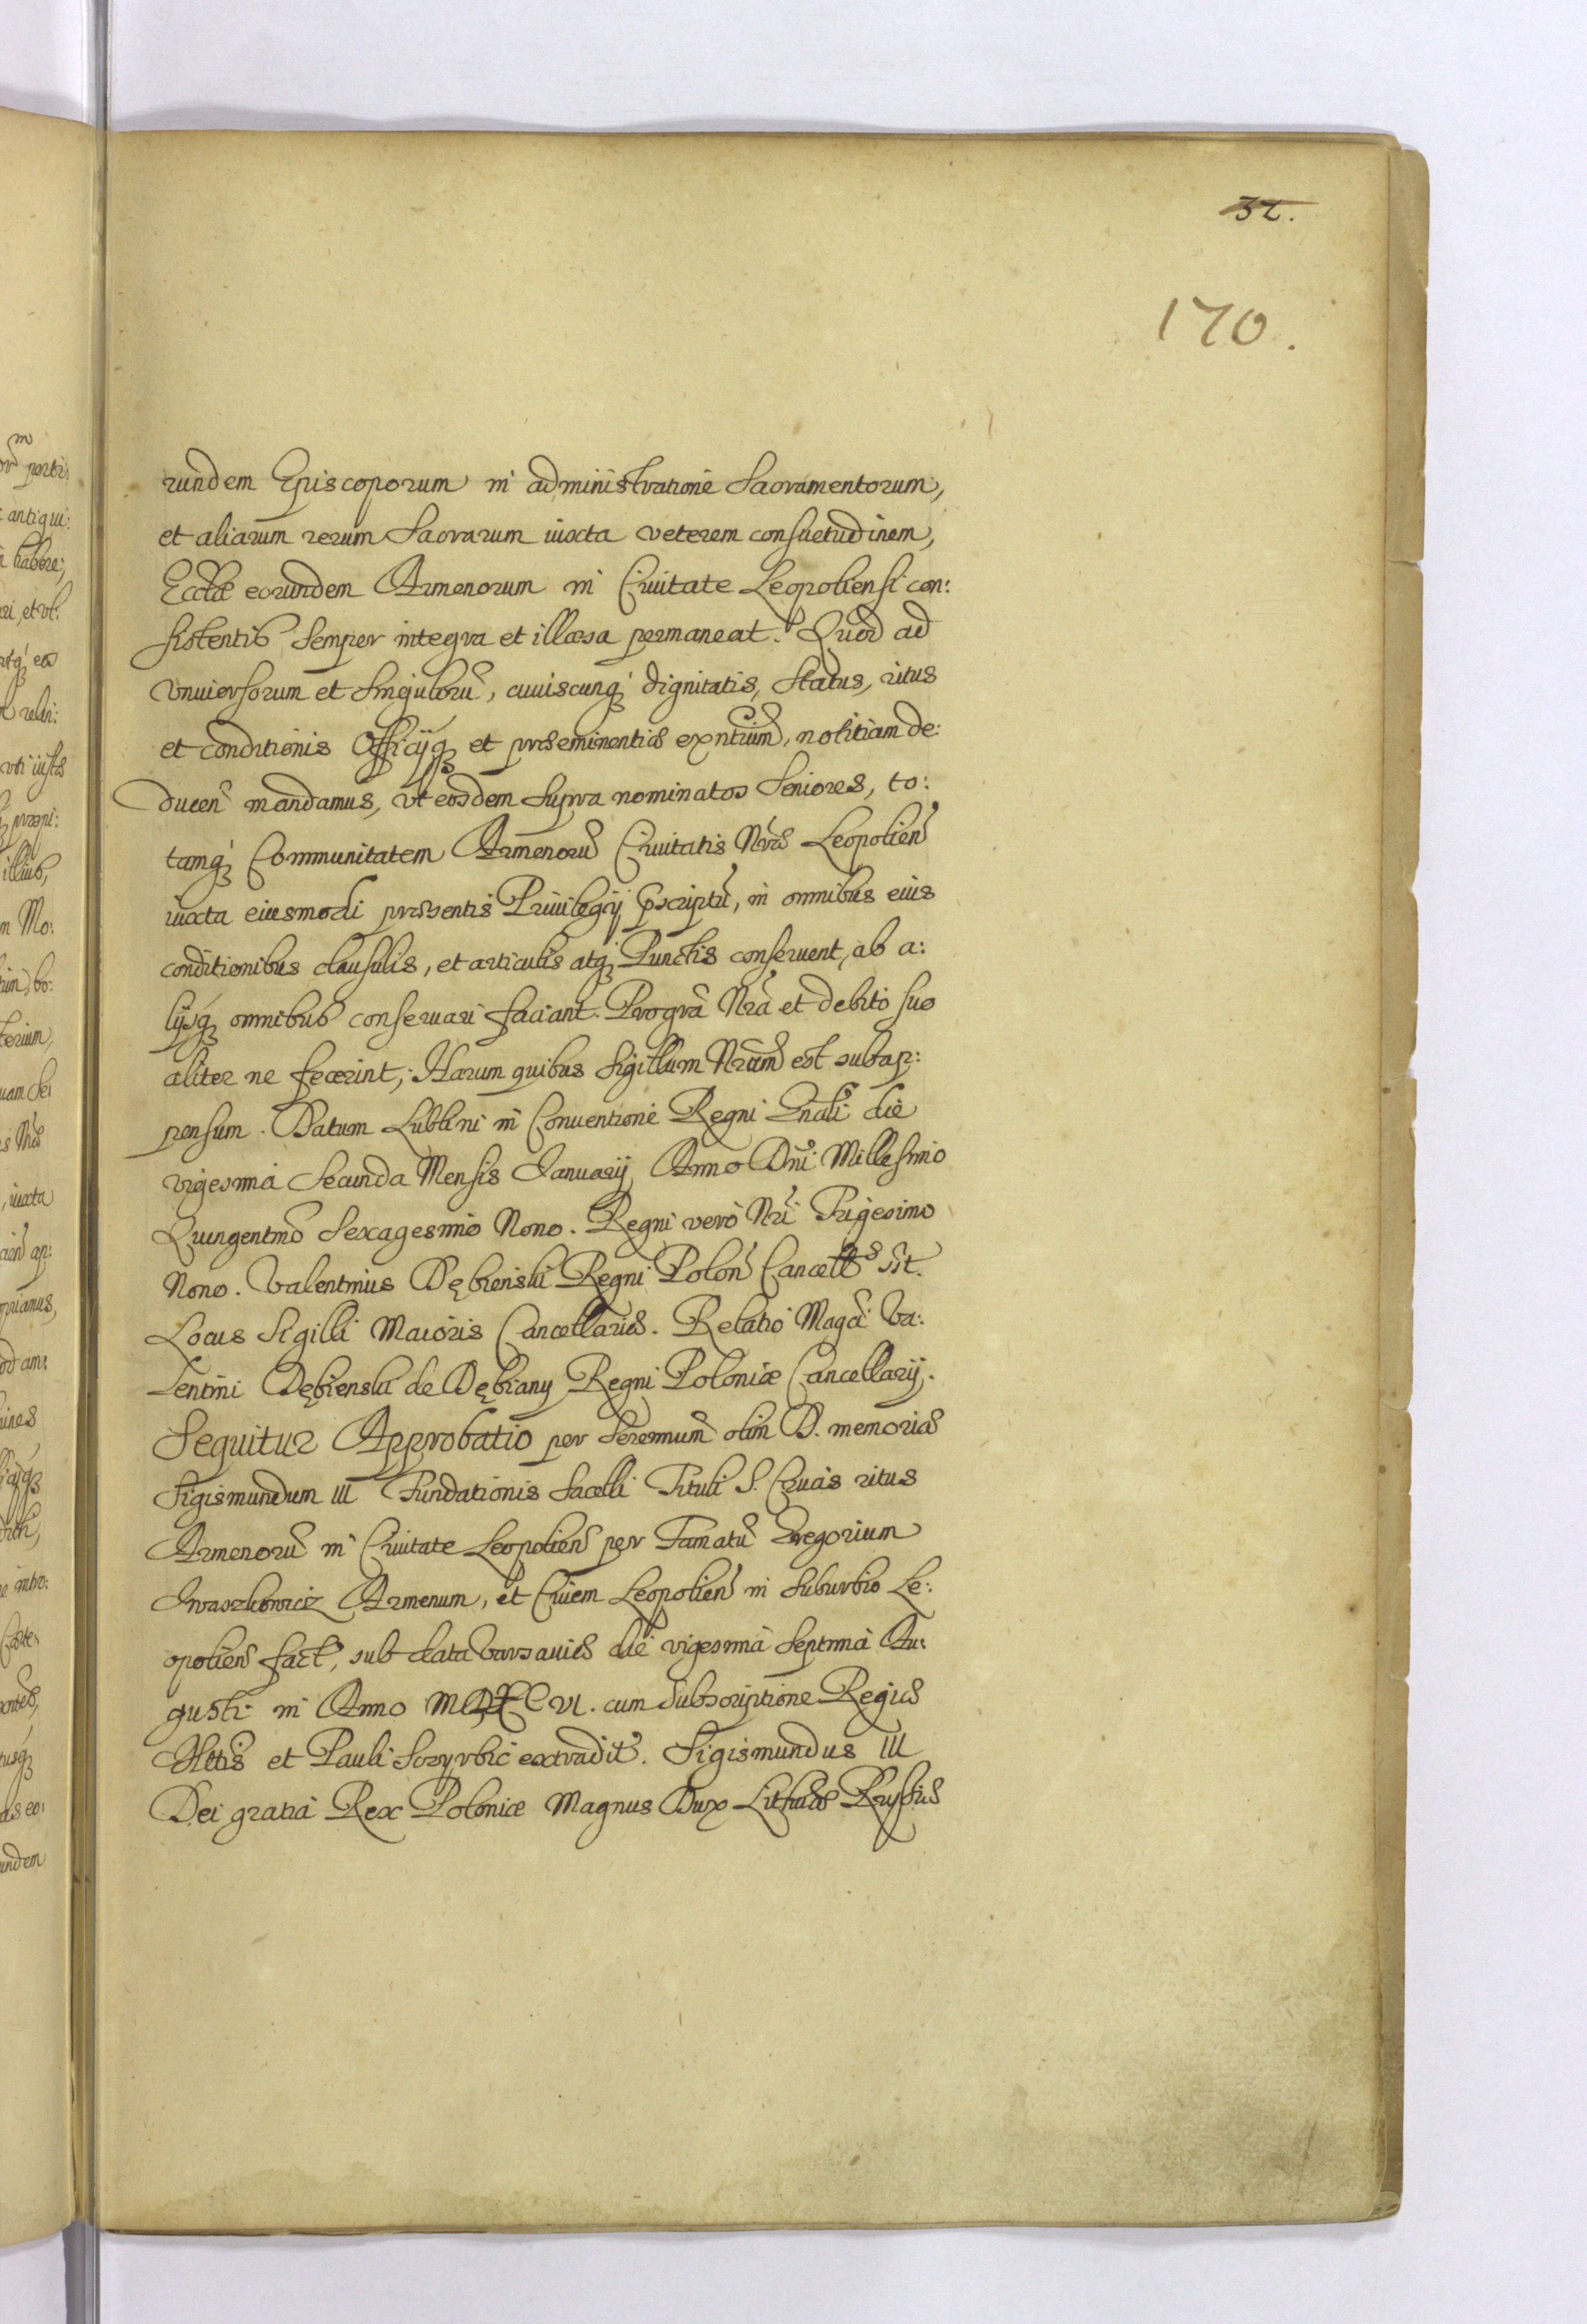 32.
170.
rundem Episcoporum in administratione Sacramentorum,
et aliarum rerum Sacrarum iuxta veterem consuetudinem,
Ecclæ eorundem Armenorum in Ciuitate Leopoliensi con:
sistentis semper integra et illæsa permaneat. Quod ad
vniuersorum et singulorũ, cuiuscunq́ʒ dignitatis, status, ritus
et conditionis Officijqʒ et præeminentiæ exñtium, notitiam de:
ducen̄ mandamus, vt eosdem supra nominatos Seniores, to:
tamqʒ Communitatem Armenorũ Ciuitatis Nræ Leopolien̄
iuxta eiusmodi præsentis Priuilegij pscriptũ, in omnibus eius
conditionibus clausulis, et articulis atqʒ Punctis conseruent, ab a:
lijsqʒ omnibus conseruari faciant. Pro grã Nrã et debito suo
aliter ne fecerint; Harum quibus Sigillum Nrũm est subap:
pensum. Datum Lublini in Conuentione Regni Gnãli die
vigesima Secunda Mensis Januarij Anno Dñi Millesimo
Quingentmõ Sexagesimo Nono. Regni verò Nri Trigesimo
Nono. Valentinus Dębienski Regni Polon̄ Cancells sst.
Locus Sigilli Maioris Cancellariæ. Relatio Magci Va:
lentini Dębienski de Dębiany Regni Poloniæ Cancellarij.
Sequitur Approbatio per Serenmum olim D. memoriæ
Sigismundum III Fundationis Sacelli Tituli S. Crucis ritus
Armenorũ in Ciuitate Leopolien̄ per Famatũ Gregorium
Iwaszkowicz Armenum, et Ciuem Leopolien̄ in Suburbio Le:
opolien̄ fact, sub data Varsauiæ die vigesima septima Au:
gusti in Anno MDXCVI. cum Subscriptione Regiæ
Mttis et Pauli extradit. Sigismundus III
Dei gratia Rex Poloniæ Magnus Dux Lithuæ Russiæ